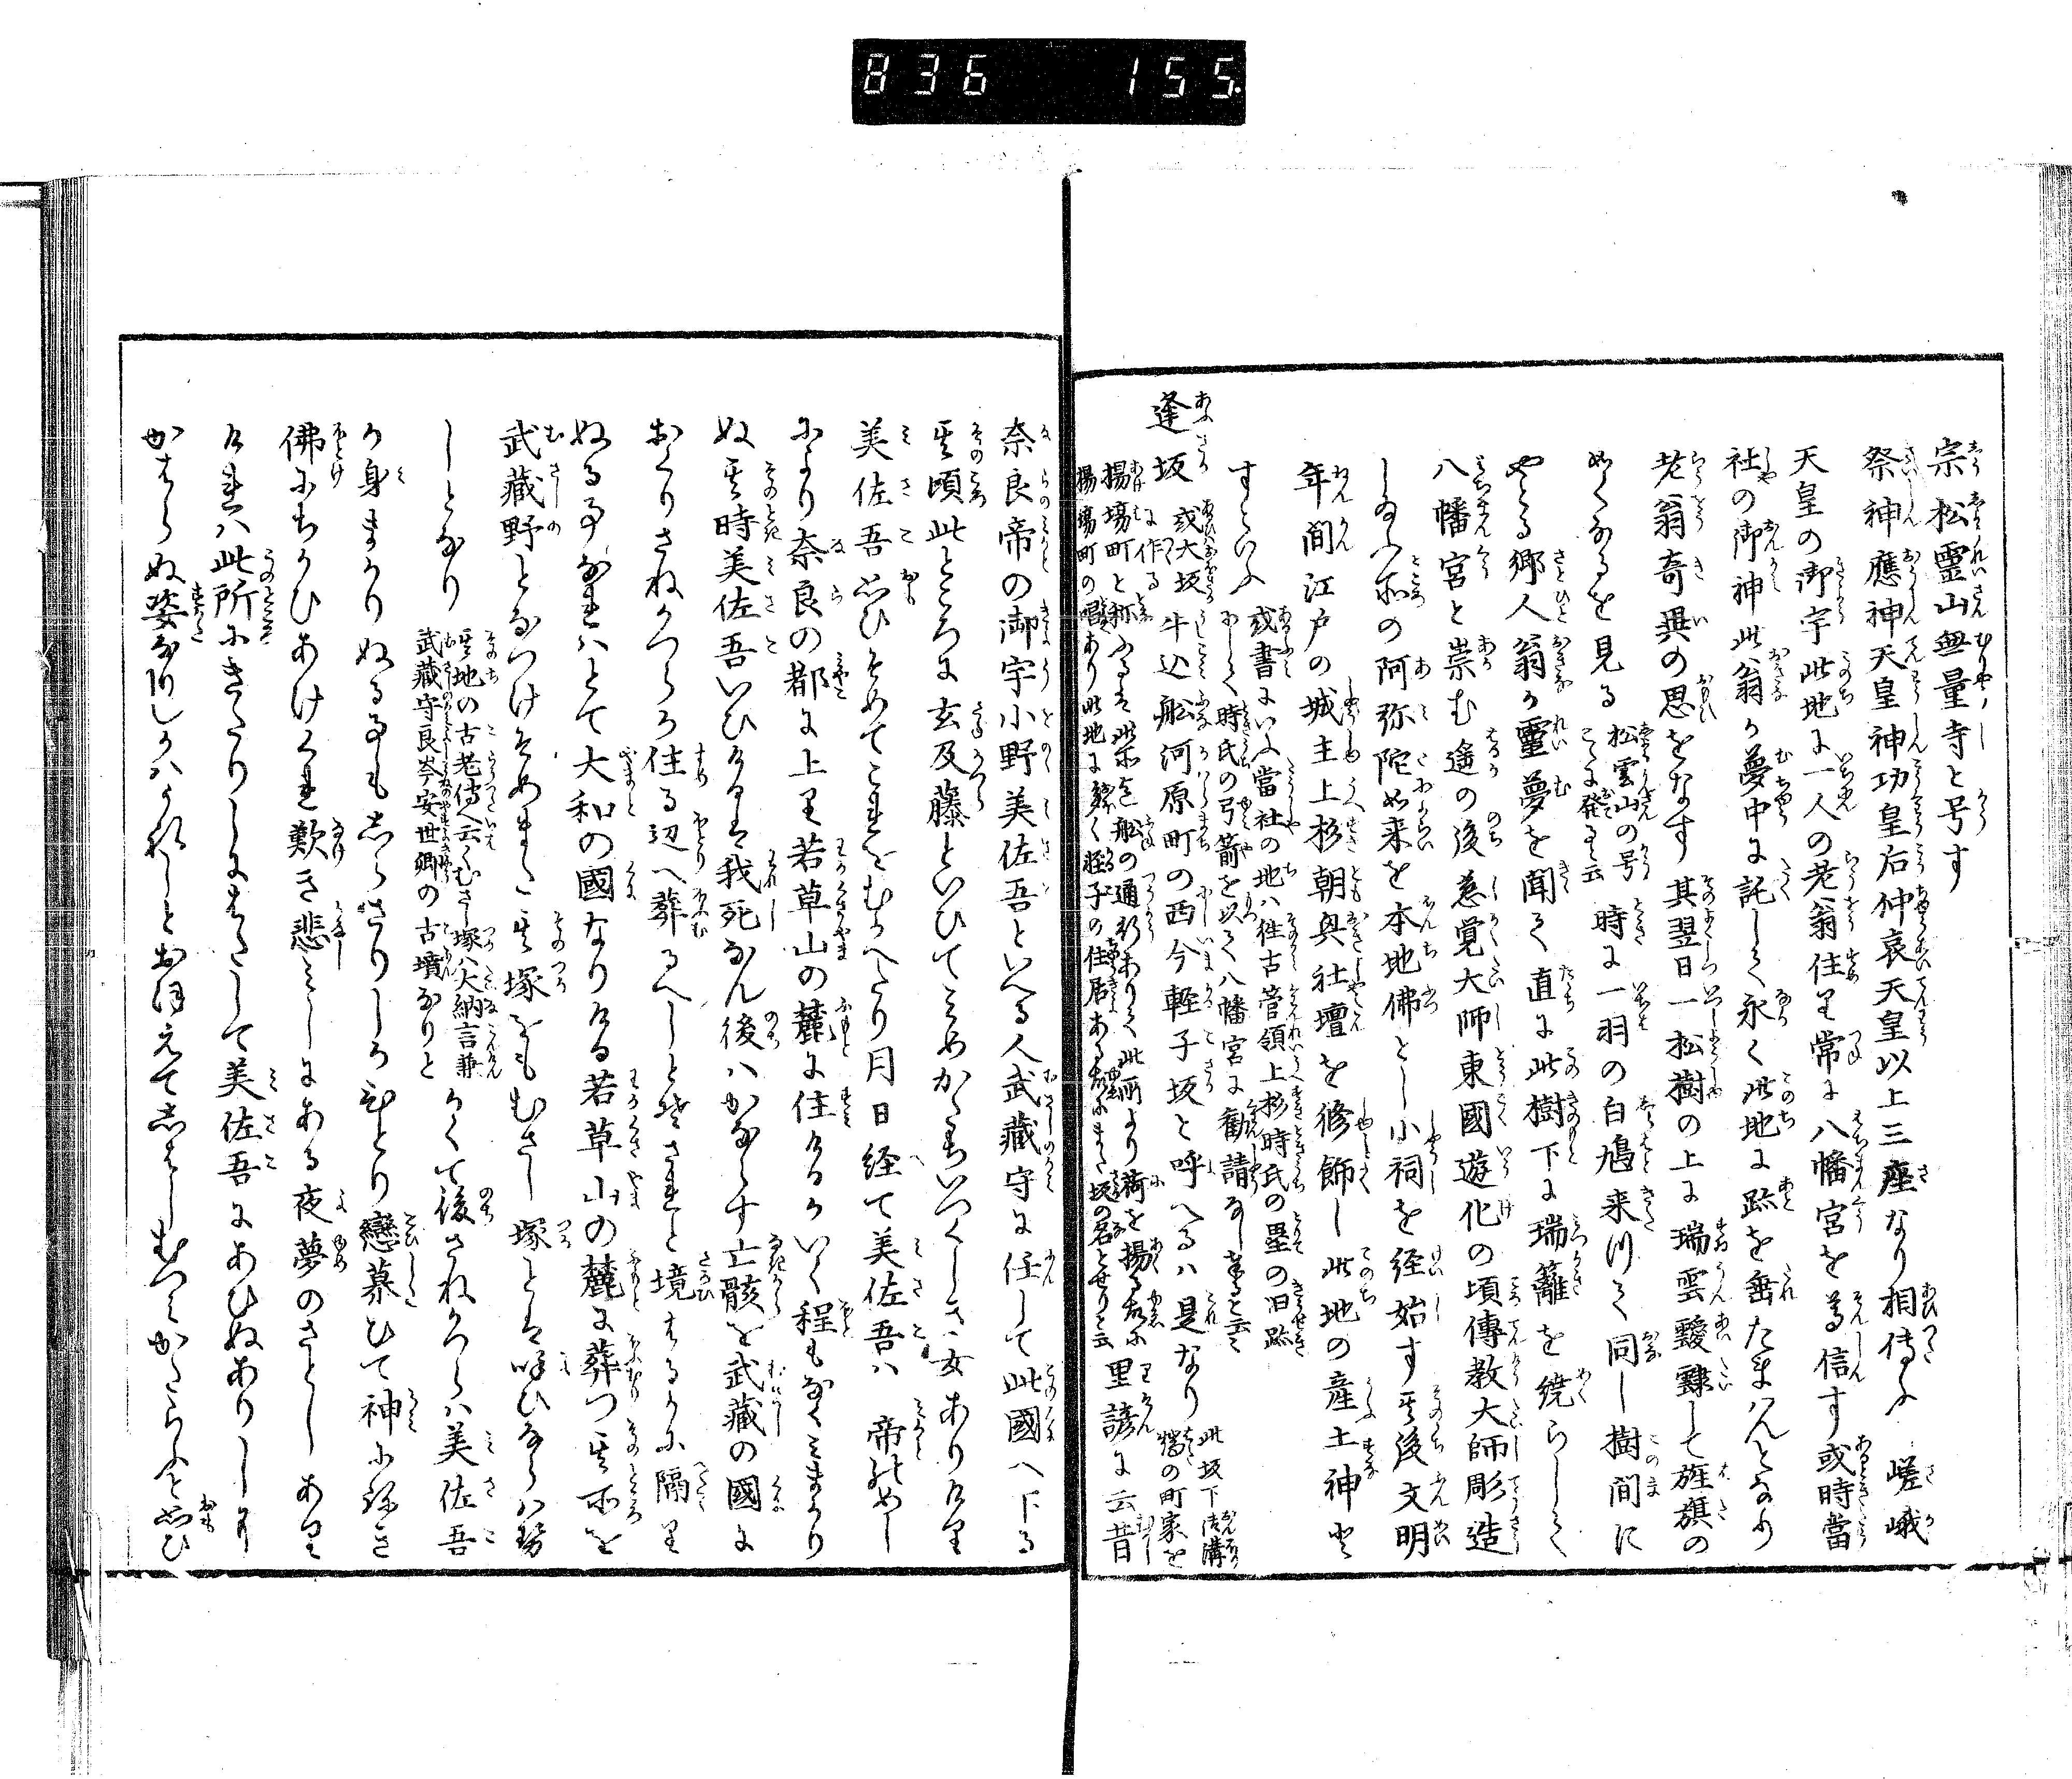 836 155.
宗松靈山無量寺と号す
祭神應神天皇神功皇后仲哀天皇以上三座なり相傳ふ 嵯峨
天皇の御宇此地に一人の老翁住り常に八幡宮を尊信す或時當
社の御神此翁か夢中に託して永く此地に跡を垂たまはんとなり
老翁奇異の思をなす其翌日一松樹の上に瑞雲靉靆して旌旗の
如くなるを見る 松雲山の号こゝに発ると云 時に一羽の白鳩来りて同し樹間に
やとる郷人翁か靈夢を聞て直に此樹下に瑞籬を繞らして
八幡宮と崇む遙の後慈覚大師東國遊化の頃傳教大師彫造
し給ふ所の阿弥陀如来を本地佛とし小祠を経始す其後文明
年間江戸の城主上杉朝興社壇を修飾し此地の産土神と
すといふ 或書にいふ當社の地ハ往古管領上杉時氏の壘の旧跡にして時氏の弓箭を以て八幡宮に勧請なし奉ると云々
逢坂 或大坂に作る 牛込舩河原町の西今軽子坂と呼へるハ是なり 此坂下御溝端の町家を
揚場町と称ふるは此所迄舩の通行ありて此所より荷を揚る故に揚場町の唱あり此地に多く軽子の住居ある故にまた坂の名とせりと云 里諺に云昔
奈良帝の御宇小野美佐吾といへる人武藏守に任して此國へ下る
其頃此ところに玄及藤といひてみめかたちいつくしき女ありけり
美佐吾思ひそめてこれをむかへたり月日経て美佐吾ハ 帝のめし
により奈良の都に上り若草山の麓に住けるかいく程もなくみまかり
ぬ其時美佐吾いひけるは我死なん後ハかならす亡骸を武藏の國に
おくりさねかつらか住る辺へ葬るへしとされと境はるかに隔り
ぬる事なれハとて大和の國なりける若草山の麓に葬つ其所を
武藏野となつけそめまた其塚をもむさし塚とは呼ひならハせ
しとなり 其地の古老傳へ云くむさし塚ハ大納言兼武藏守良岑安世卿の古墳なりと かくて後さねかつらハ美佐吾
か身まかりぬる事もしらさりしかひとり戀慕ひて神に祈き
佛にちかひあけくれ歎き悲みしにある夜夢のさとしあり
けれハ此所にきたりしにはたして美佐吾にあひぬありしに
かはらぬ姿なりしかハうれしとおほえてしはしむつみかたらふと思ひ